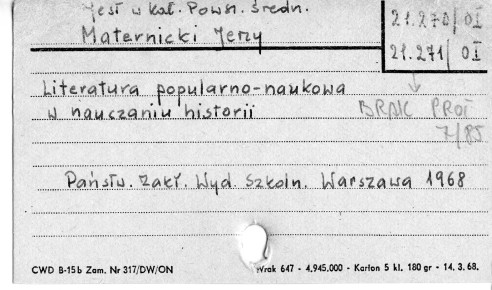 Jest w kat. Powsz. Średn.
Maternicki Jerzy
21.270/OI
21.271/OI
Literatura popularno-naukowa
w nauczaniu historii
BRAK PROT
7/85
Państw. Zakł. Wyd. Szkoln. Warszawa 1968
CWD B-15b Zam. Nr 317/DW/ON
Wrak 647 - 4.945.000 - Karton 5 kl. 180 gr - 14. 3. 68.